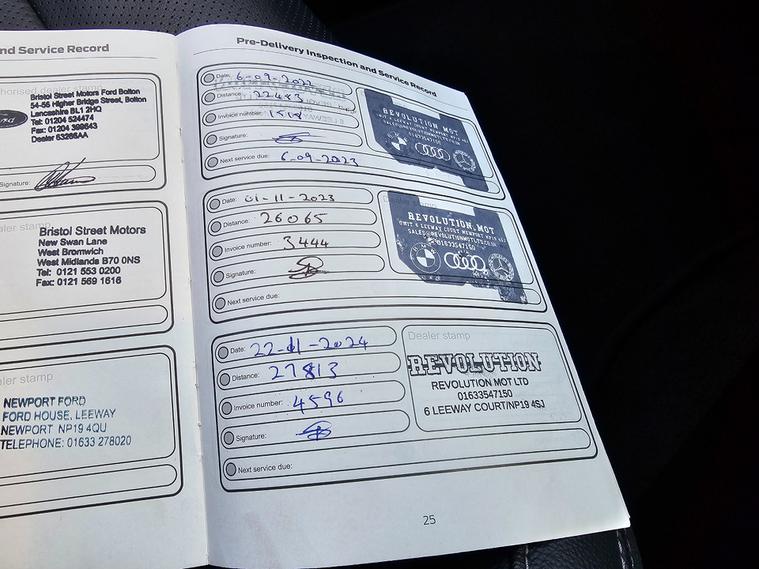 nd Service Record
Bristol Street Motors Ford Bolton
54-56 Higher Bridge Street, Bolton
Lancashire BL1 2HQ
Tel: 01204 524474
Fax: 01204 399643
Dealer 63266AA
Signature:
ler stamp
Bristol Street Motors
New Swan Lane
West Bromwich
West Midlands B70 0NS
Tel: 0121 553 0200
Fax: 0121 569 1616
ler stamp
NEWPORT FORD
FORD HOUSE, LEEWAY
NEWPORT NP19 4QU
TELEPHONE: 01633 278020
Pre-Delivery Inspection and Service Record
Date: 6-09-2022
Distance: 22483
Invoice number:
Signature:
Next service due: 6-09-2023
REVOLUTION MOT
Date: 01-11-2023
Distance: 26065
Invoice number: 3444
Signature:
Next service due:
REVOLUTION.MOT
UNIT 6 LEEWAY COURT NEWPORT NP19 4SJ
01633547150
Date: 22-11-2024
Distance: 27813
Invoice number: 4596
Signature:
Next service due:
Dealer stamp
REVOLUTION
REVOLUTION MOT LTD
01633547150
6 LEEWAY COURT/NP19 4SJ
25